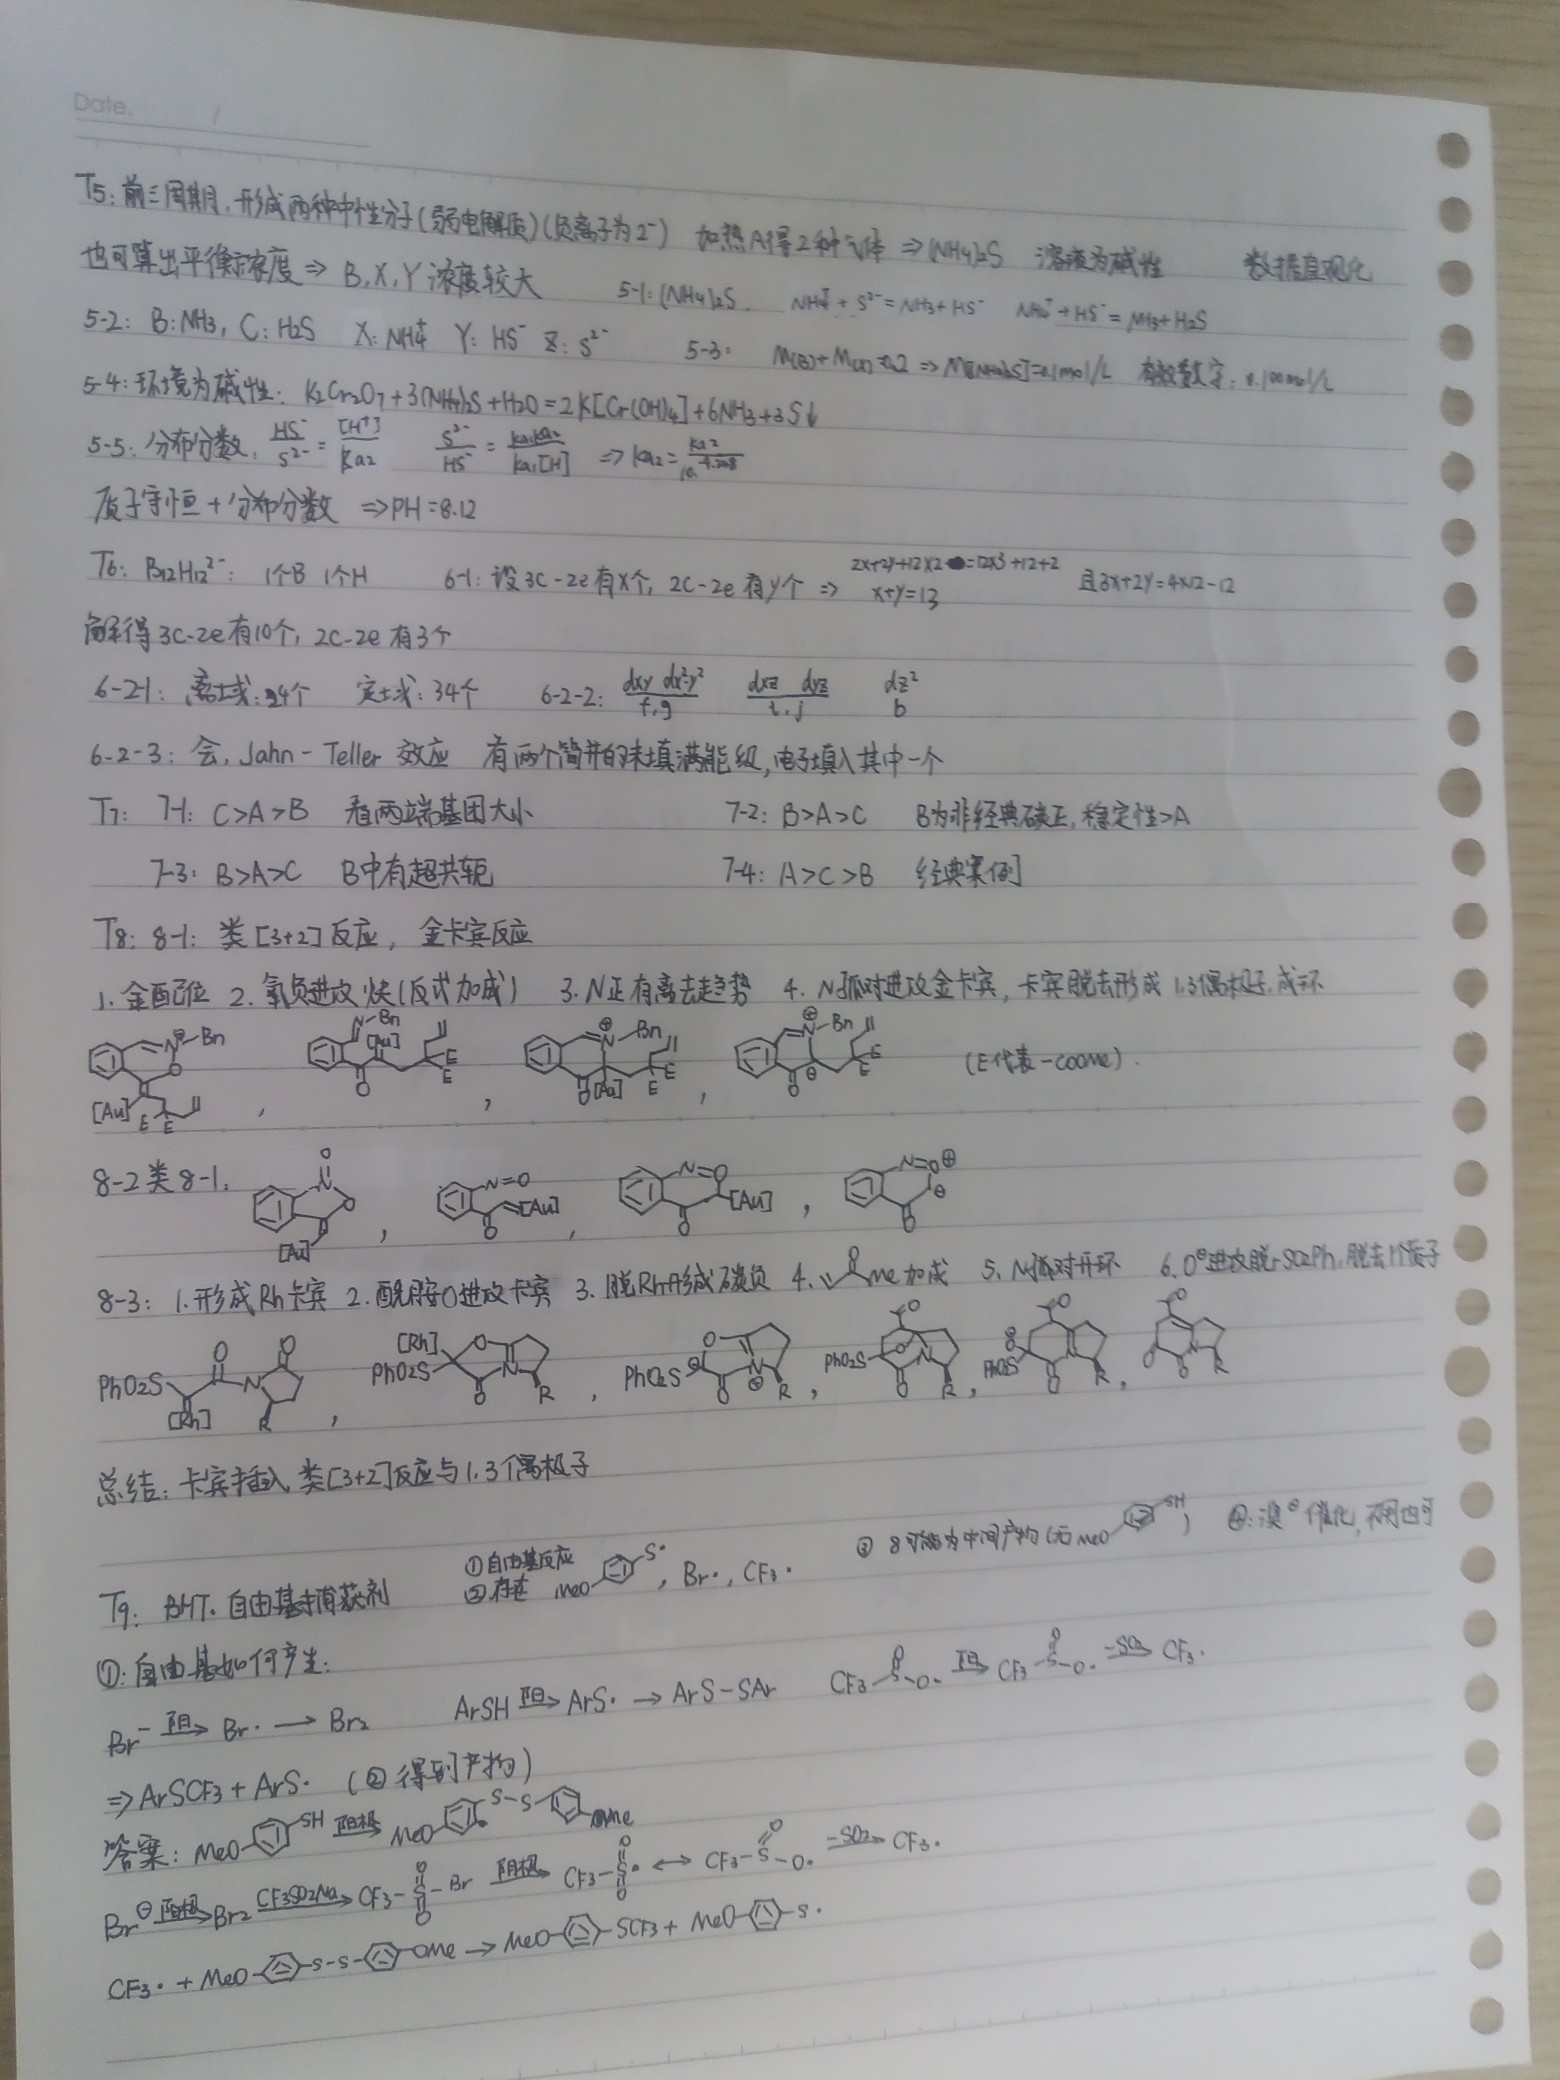 Date. /
T5: 前三周期, 形成两种中性分子(弱电解质)(负离子为2⁻) 加热A得2种气体 ⇒(NH4)2S 溶液为碱性 数据直观化
也可算出平衡浓度 ⇒ B, X, Y 浓度较大 5-1: (NH4)2S. NH4⁺ + S²⁻ = NH3 + HS⁻ NH4⁺ + HS⁻ = NH3 + H2S
5-2: B: NH3, C: H2S X: NH4⁺ Y: HS⁻ Z: S²⁻ 5-3: ⇒ =0.1mol/L 有效数字: 0.100mol/L
5-4: 环境为碱性: K2Cr2O7 + 3(NH4)2S + H2O = 2K[Cr(OH)4] + 6NH3 + 3S↓
5-5: 分布分数, HS⁻/S²⁻ = [H⁺]/Ka2 S²⁻/HS⁻ = Ka1Ka2/Ka1[H] ⇒ Ka2 =
质子守恒 + 分布分数 ⇒ PH = 8.12
T6: B12H12²⁻: 1个B 1个H 6-1: 设3C-2e有x个, 2C-2e有y个 ⇒ 2x+2y+12×2=12×3+12+2 x+y=13 且3x+2y=4×12-12
解得3C-2e有10个, 2C-2e有3个
6-2-1: 离域: 24个 定域: 34个 6-2-2: dxy dx²-y²/f,g dxz dyz/i,j dz²/b
6-2-3: 会, Jahn-Teller 效应 有两个简并的未填满能级, 电子填入其中一个
T7: 7-1: C>A>B 看两端基团大小 7-2: B>A>C B为非经典碳正, 稳定性>A
7-3: B>A>C B中有超共轭 7-4: A>C>B 经典案例
T8: 8-1: 类[3+2]反应, 金卡宾反应
1. 金配位 2. 氧负进攻炔(反式加成) 3. N正有离去趋势 4. N孤对进攻金卡宾, 卡宾脱去形成1.3偶极子, 成环
N⊕ Bn O [Au] E E , N Bn [Au] O E E , N⊕ Bn O [Au] E E , N⊕ Bn O ⊖ E E (E代表-COOMe).
8-2类8-1. O N O [Au] , N=O O [Au] , N=O O [Au] , N=O⊕ ⊖ O
8-3: 1. 形成Rh卡宾 2. 酰胺O进攻卡宾 3. 脱Rh形成碳负 4. O Me加成 5. N孤对开环 6. O⊖进攻脱-SO2Ph, 脱去1个质子
PhO2S O [Rh] N O R , [Rh] PhO2S O N O R , PhO2S O ⊖ O N⊕ R , PhO2S O O N O R , PhO2S O O N R , O O O N R
总结: 卡宾插入 类[3+2]反应与1.3偶极子
T9: BHT. 自由基捕获剂 ①自由基反应 ②存在 MeO S· , Br· , CF3· ③ 8可能为中间产物(无MeO SH) ④: 溴⊖催化, 不用也可
①: 自由基如何产生:
Br⁻ 阳→ Br· → Br2 ArSH 阳→ ArS· → ArS-SAr CF3 S O O- 阳→ CF3 S O O· -SO2→ CF3·
⇒ ArSCF3 + ArS· (②得到产物)
答案: MeO SH 阳极→ MeO S-S OMe
Br⊖ 阳极→ Br2 CF3SO2Na→ CF3-S(O)(O)-Br 阴极→ CF3-S(O)(O)· ↔ CF3-S O O· -SO2→ CF3·
CF3· + MeO S-S OMe → MeO SCF3 + MeO S·